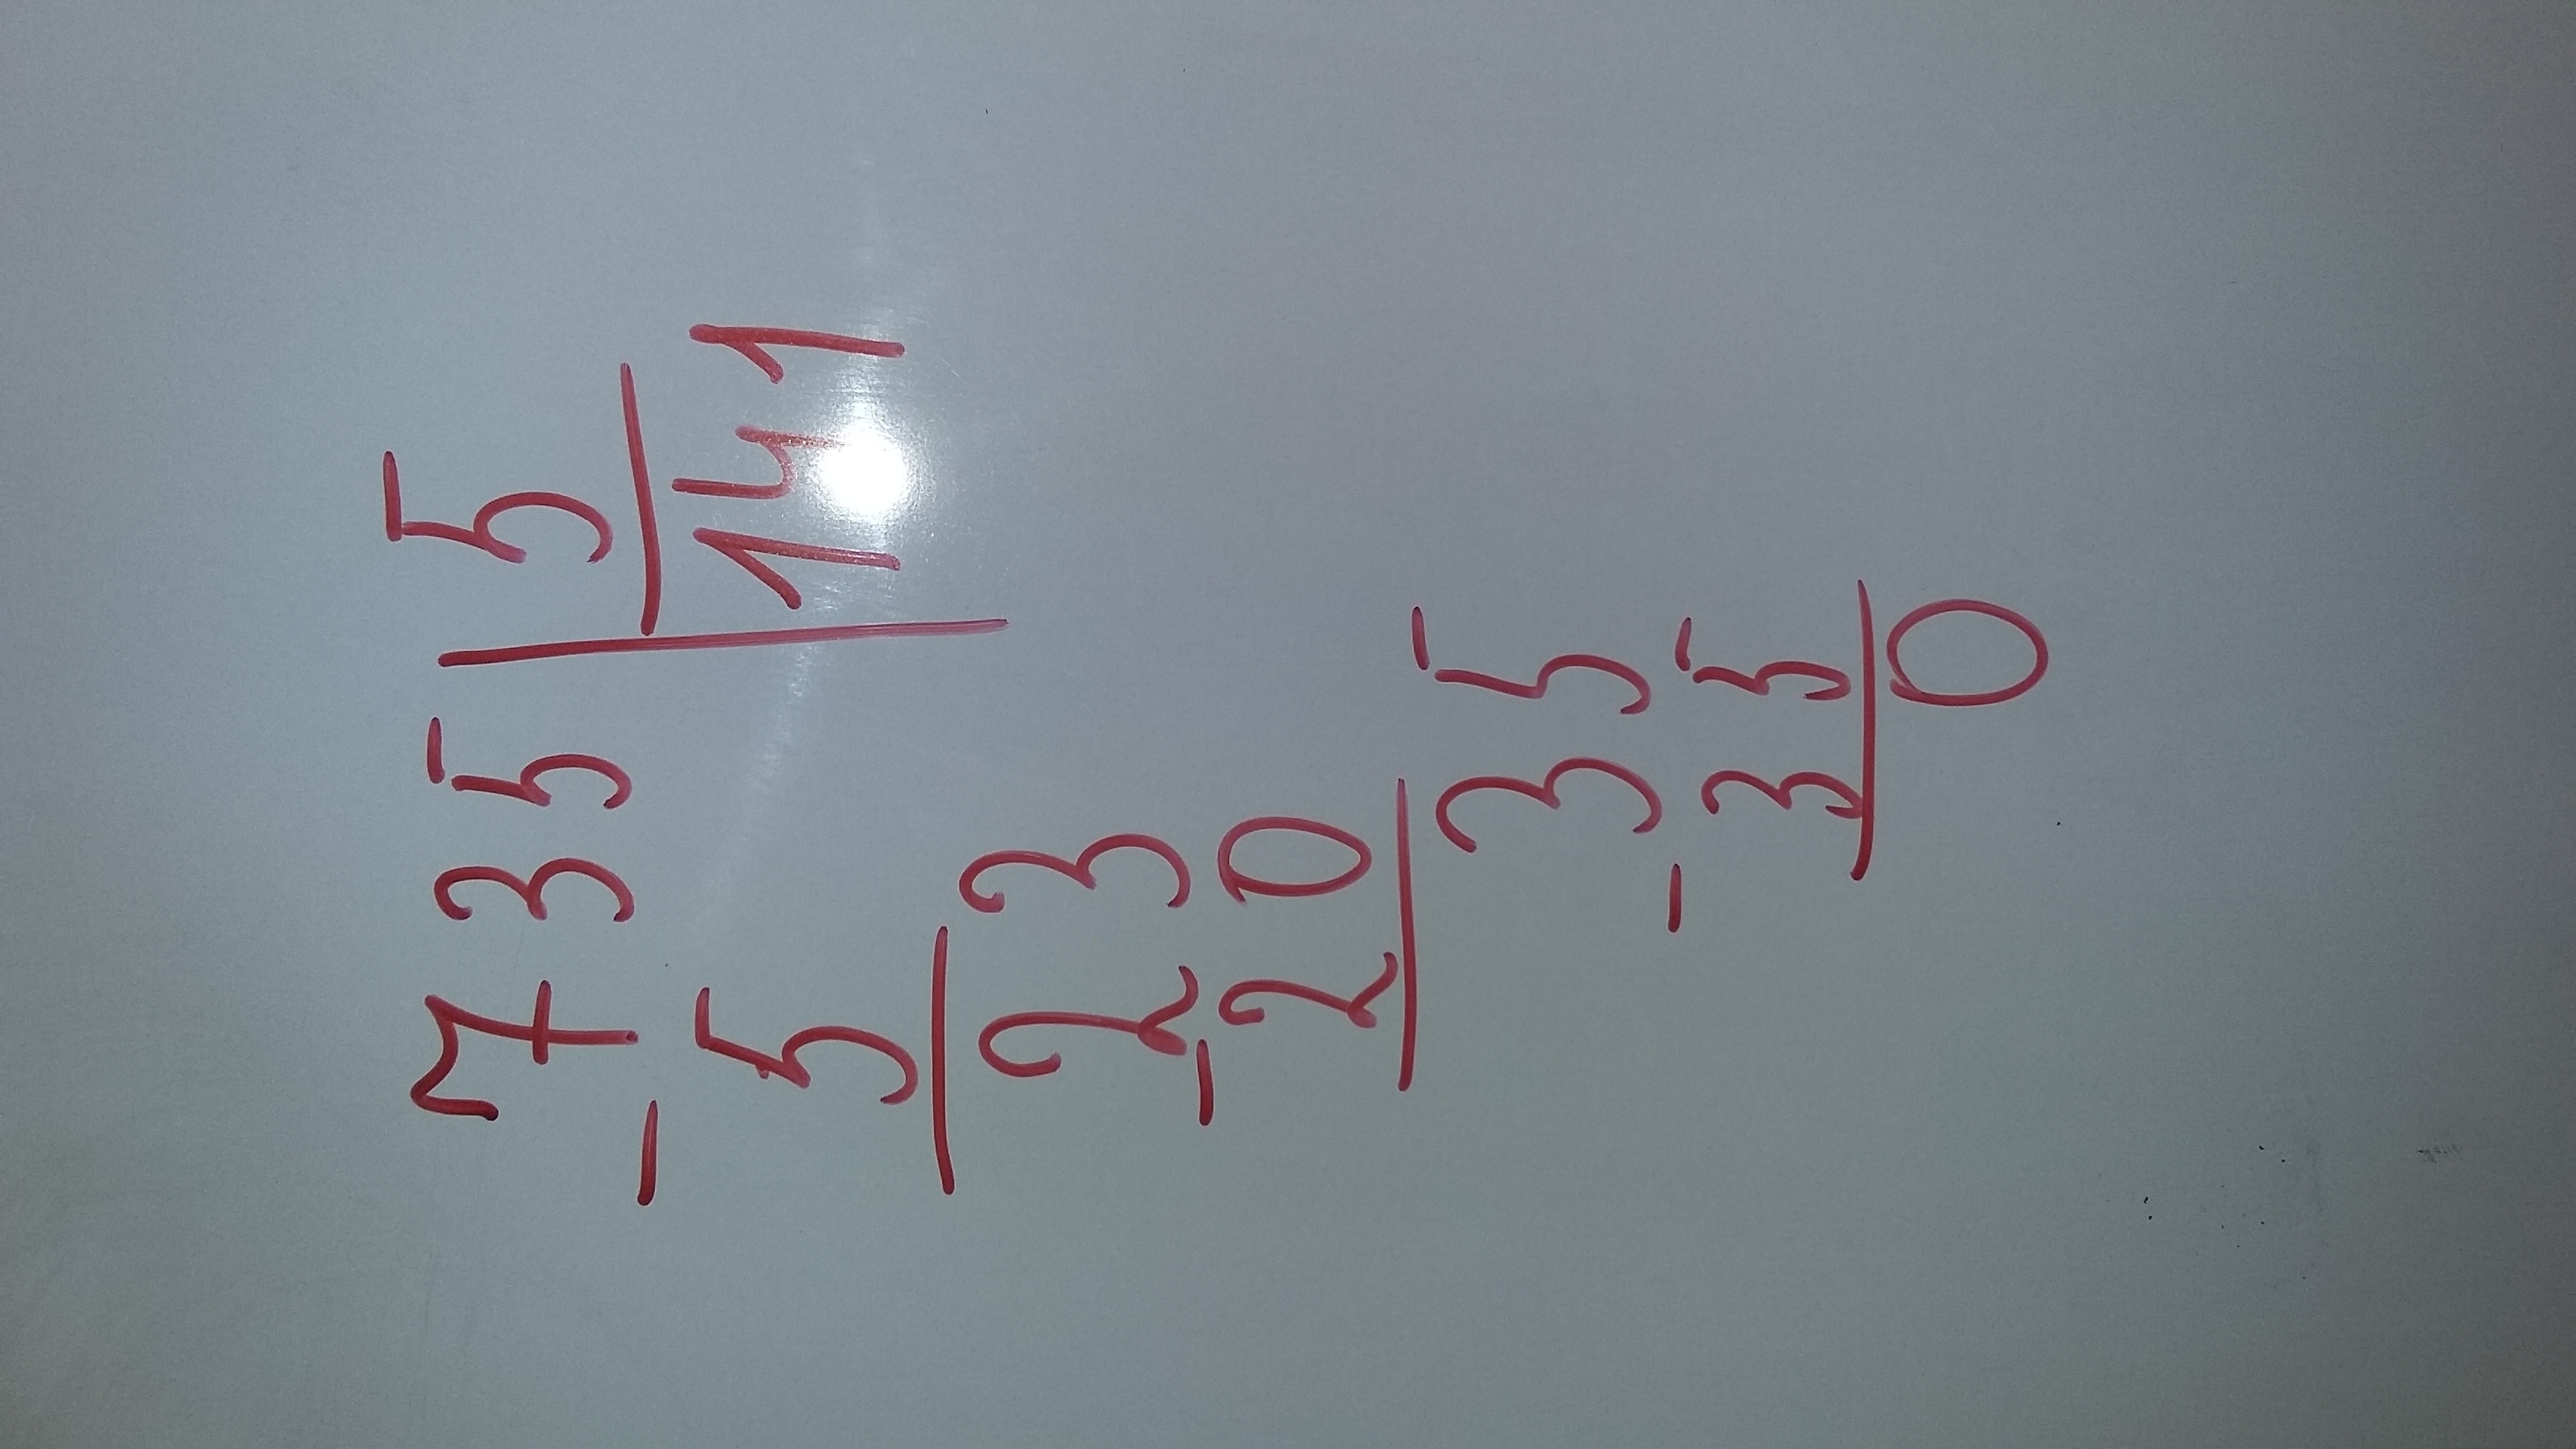 735 5
- 5 141
23
- 20
35
- 35
0